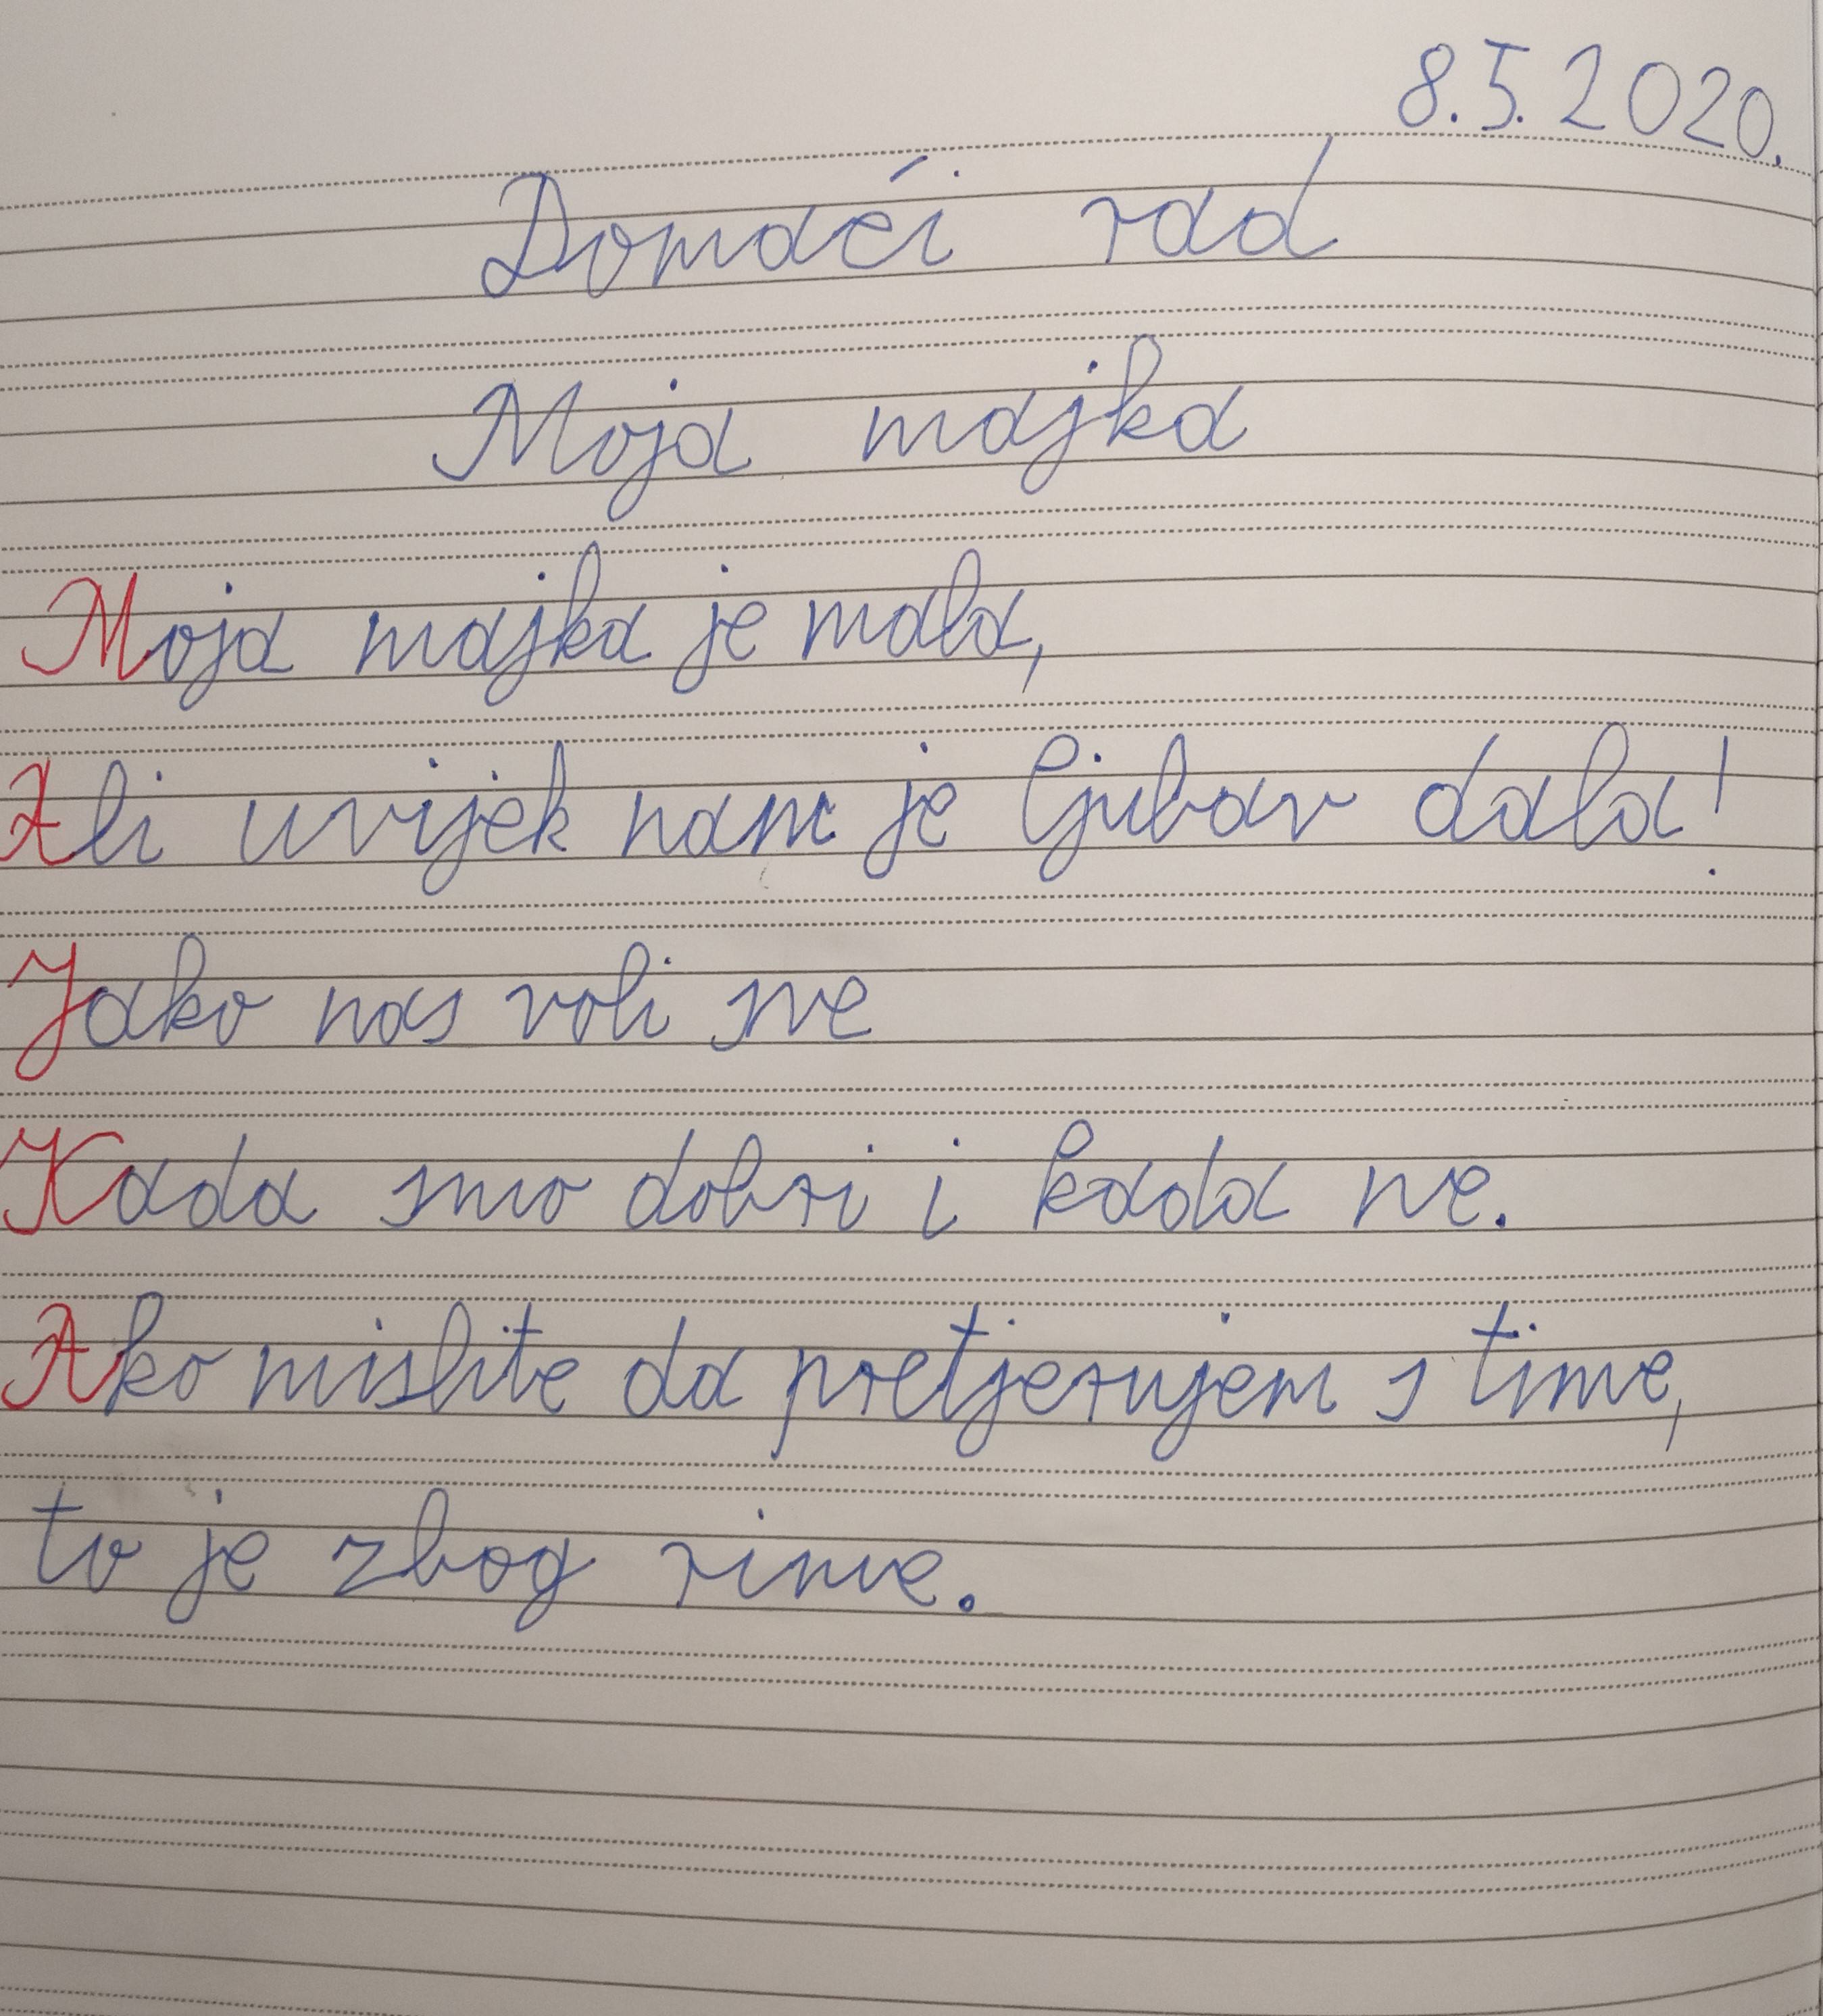 8.5.2020.
Domaći rad
Moja majka
Moja majka je mala,
Ali uvijek nam je ljubav dala!
Jako nas voli sve
Kada smo dobri i kada ne.
Ako mislite da pretjerujem s time,
to je zbog rime.